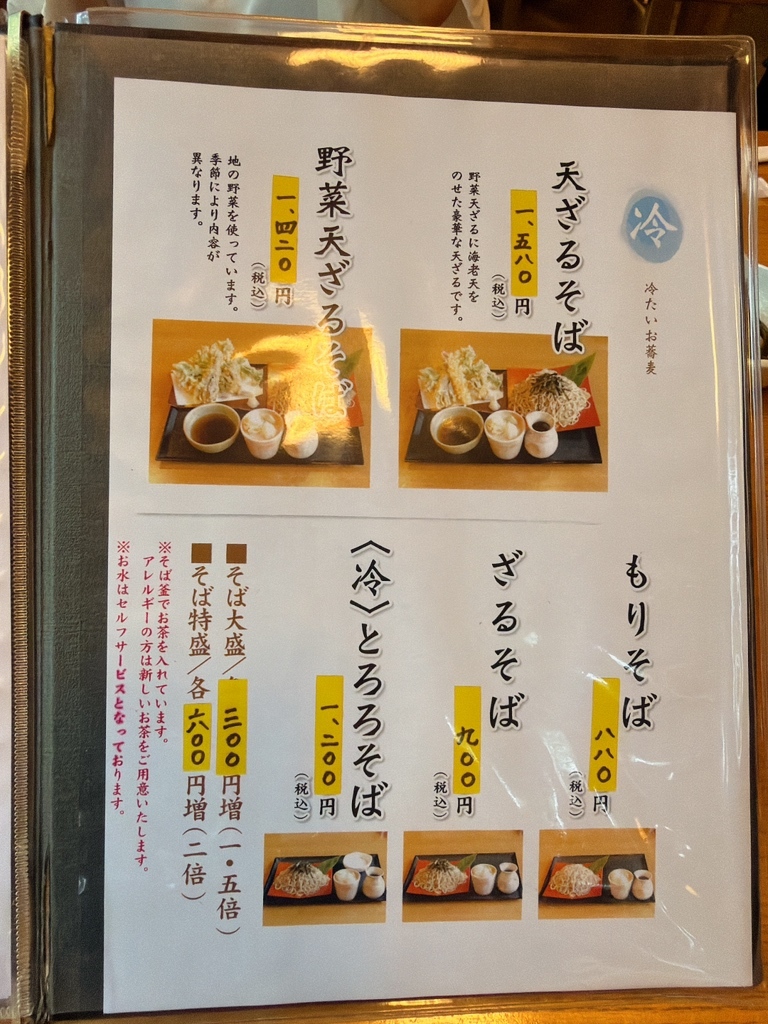 冷
冷たいお蕎麦
天ざるそば
一、五八〇円
（税込）
野菜天ざるに海老天を
のせた豪華な天ざるです。
野菜天ざるそば
一、四二〇円
（税込）
地の野菜を使っています。
季節により内容が
異なります。
もりそば
八八〇円
（税込）
ざるそば
九〇〇円
（税込）
〈冷〉とろろそば
一、二〇〇円
（税込）
■そば大盛／各三〇〇円増（一・五倍）
■そば特盛／各六〇〇円増（二倍）
※そば釜でお茶を入れています。
アレルギーの方は新しいお茶をご用意いたします。
※お水はセルフサービスとなっております。